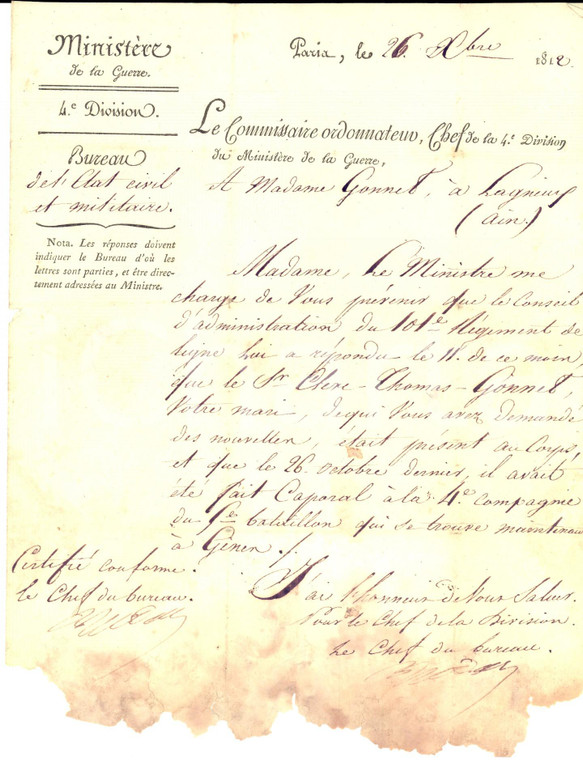 Ministère
de la Guerre.
4.e Division.
Bureau
de l'Etat civil
et militaire.
Nota. Les réponses doivent
indiquer le Bureau d'où les
lettres sont parties, et être direc-
tement adressées au Ministre.
Paris, le 26 Xbre 1812
Le Commissaire ordonnateur, Chef de la 4.e Division
du Ministère de la Guerre,
A Madame Gonnet, à Lagnieu
(ain.)
Madame, Le Ministre me
charge de Vous prévenir que le Conseil
d'administration du 101e Régiment de
ligne lui a répondu le 11. de ce mois,
que le Sr. Clerc-Thomas-Gonnet,
Votre mari, de qui Vous avez demandé
des nouvelles, était présent au Corps,
et que le 26. octobre dernier, il avait
été fait Caporal à la 4e Compagnie
du 5e bataillon qui se trouve maintenant
à Gênes ./.
J'ai l'honneur de Vous Saluer.
Pour le Chef de la Division.
Le Chef du bureau.
Certifié conforme.
Le Chef du bureau.